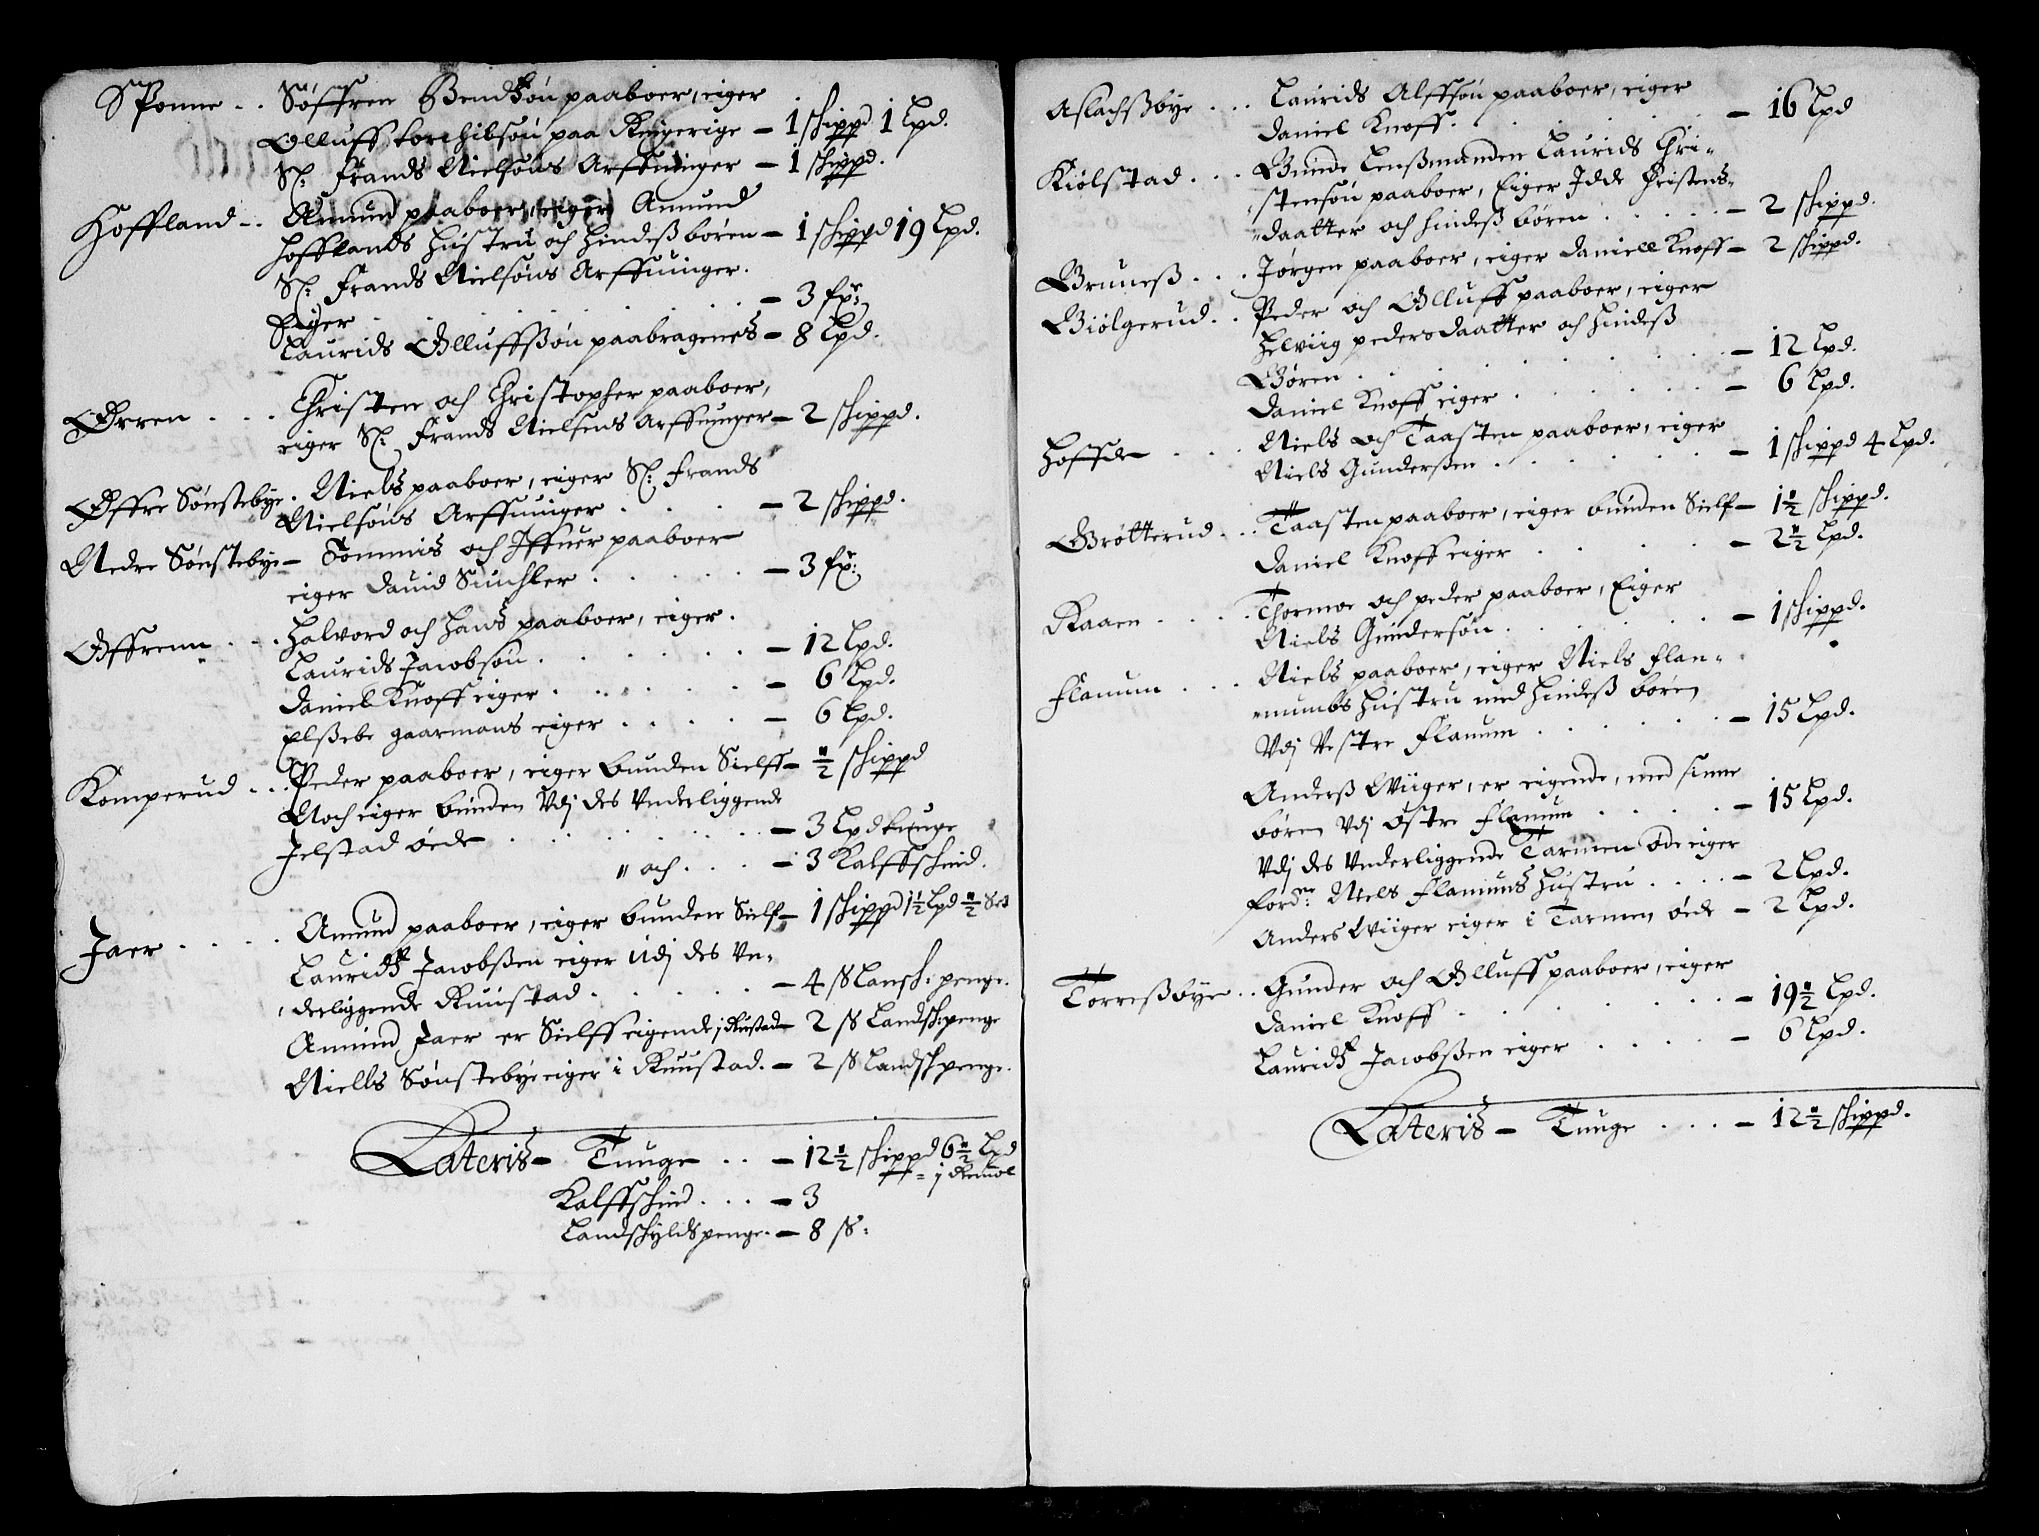 Sponne . . Søffren Bendtsøn paaboer, eiger
Olluff torchibsøn paa Ringerige - 1 schippd 1 Lpd.
Sl: Frands Nielsøns Arffuinger - 1 schippd.
Hoffland - . Amund paaboer, eiger Amund
Hofflands Hustru och hindeß børen - 1 schippd 19 Lpd.
Sl: Frands Nielsøns Arffuinger.
Eiger . . . . . - 3 fxr:
Laurids Olluffßøn paa bragenes - 8 Lpd.
Ørren . . . Christen och Christopher paaboer,
eiger Sl: Frands Nielsøns Arffuinger - 2 schippd.
Øffre Sønstebye . Niels paaboer, eiger Sl: Frands
Nielsøns Arffuinger . . . . - 2 schippd.
Nedre Sønstebye - Tommis och Iffuer paaboer
eiger Dauid Sinchler . . . . . - 3 fxr:
Offrenn . . . Halvord och Hans paaboer, eiger .
Laurids Jacobsøn . . . . . . - 12 Lpd.
Daniel Knoff eiger . . . . . - 6 Lpd.
Elßebe gaarmans eiger . . . . - 6 Lpd.
Komperud . . . Peder paaboer, eiger bunden Sielff - ½ schippd
Noch eiger bunden Vdj des Vnderliggende
Jelstad øede . . . . . . . - 3 Lpd tunge
" och . . . - 3 Kalffschind.
Jaer . . . . Amund paaboer, eiger bunden Sielf - 1 schippd 1½ Lpd ½
Lauridtz Jacobßen eiger Udj des Vn-
derliggende Ruustad . . . . . - 4 ß Lansch: penge.
Amund Jaer er Sielff eigende j Rustad - 2 ß Landsch:penge
Niells Sønstebye eiger i Ruustad. - 2 ß Landschpenge.
Lateris - Tunge . . - 12½ schippd 6½ Lpd
Kalffschind . . . - 3
Landschyldspenge. - 8 ß:
Aslachßbye . . . Laurids Alffsøn paaboer, eiger
Daniel Knoff . . . . . . - 16 Lpd
Kiølstad . . . Bunde Lensßmanden Laurids Chri-
stensøn paaboer, Eiger Idde Christens-
daatter och hindeß børen . . . . . - 2 schippd.
Bruneß . . . Jørgen paaboer, eiger Daniell Knoff - 2 schippd.
Giølgerud . . Peder och Olluff paaboer, eiger
Helviig pedersdaatter och hindeß
Børen . . . . . . . . - 12 Lpd.
Daniel Knoff eiger . . . . . . - 6 Lpd.
Hoffde . . . Niels och Taasten paaboer, eiger
Niels Gunderßen . . . . . . - 1 schippd 4 Lpd.
Grøtterud . . . Taasten paaboer, eiger bunden Sielf - 1½ schippd.
Daniel Knoff eiger . . . . - 2½ Lpd.
Raaen . . . . Thormoe och peder paaboer, Eiger
Niels Gundersøn . . . . . . - 1 schippd.
Flanum . . . Niels paaboer, eiger Niels Flan-
numbs Hustru med hindeß børen
Vdj Vestre Flanum . . . . . - 15 Lpd.
Anderß Wiiger, er eigende, med sinne
børen Vdj østre Flanum . . . . - 15 Lpd.
Vdj des Vnderliggende Tarmen øde eiger
ford:ne Niels Flanums Hustru . . . - 2 Lpd.
Anders Wiiger eiger i Tarmen øede - 2 Lpd.
Torreßbye . . Gunder och Olluff paaboer, eiger
Daniel Knoff . . . . . . - 19½ Lpd.
Lauridtz Jacobßen eiger . . . . - 6 Lpd.
Lateris - Tunge . . . - 12½ schippd.